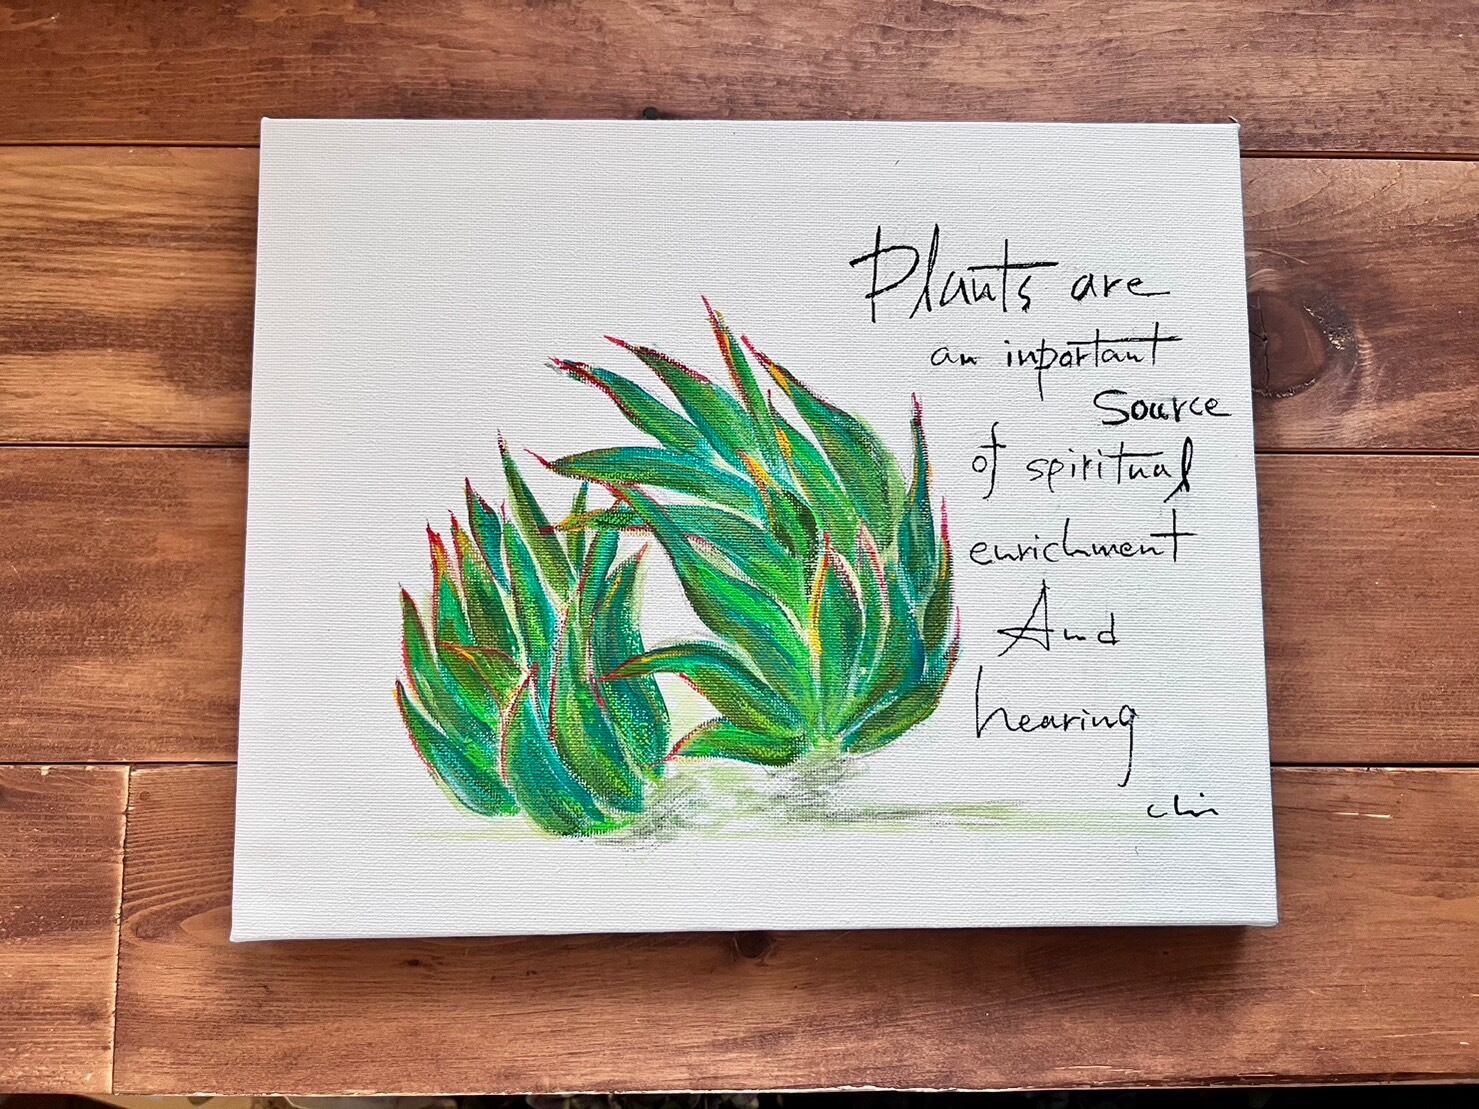 Plants are
an inportant
Source
of spiritual
enrichment
And
hearing
chi